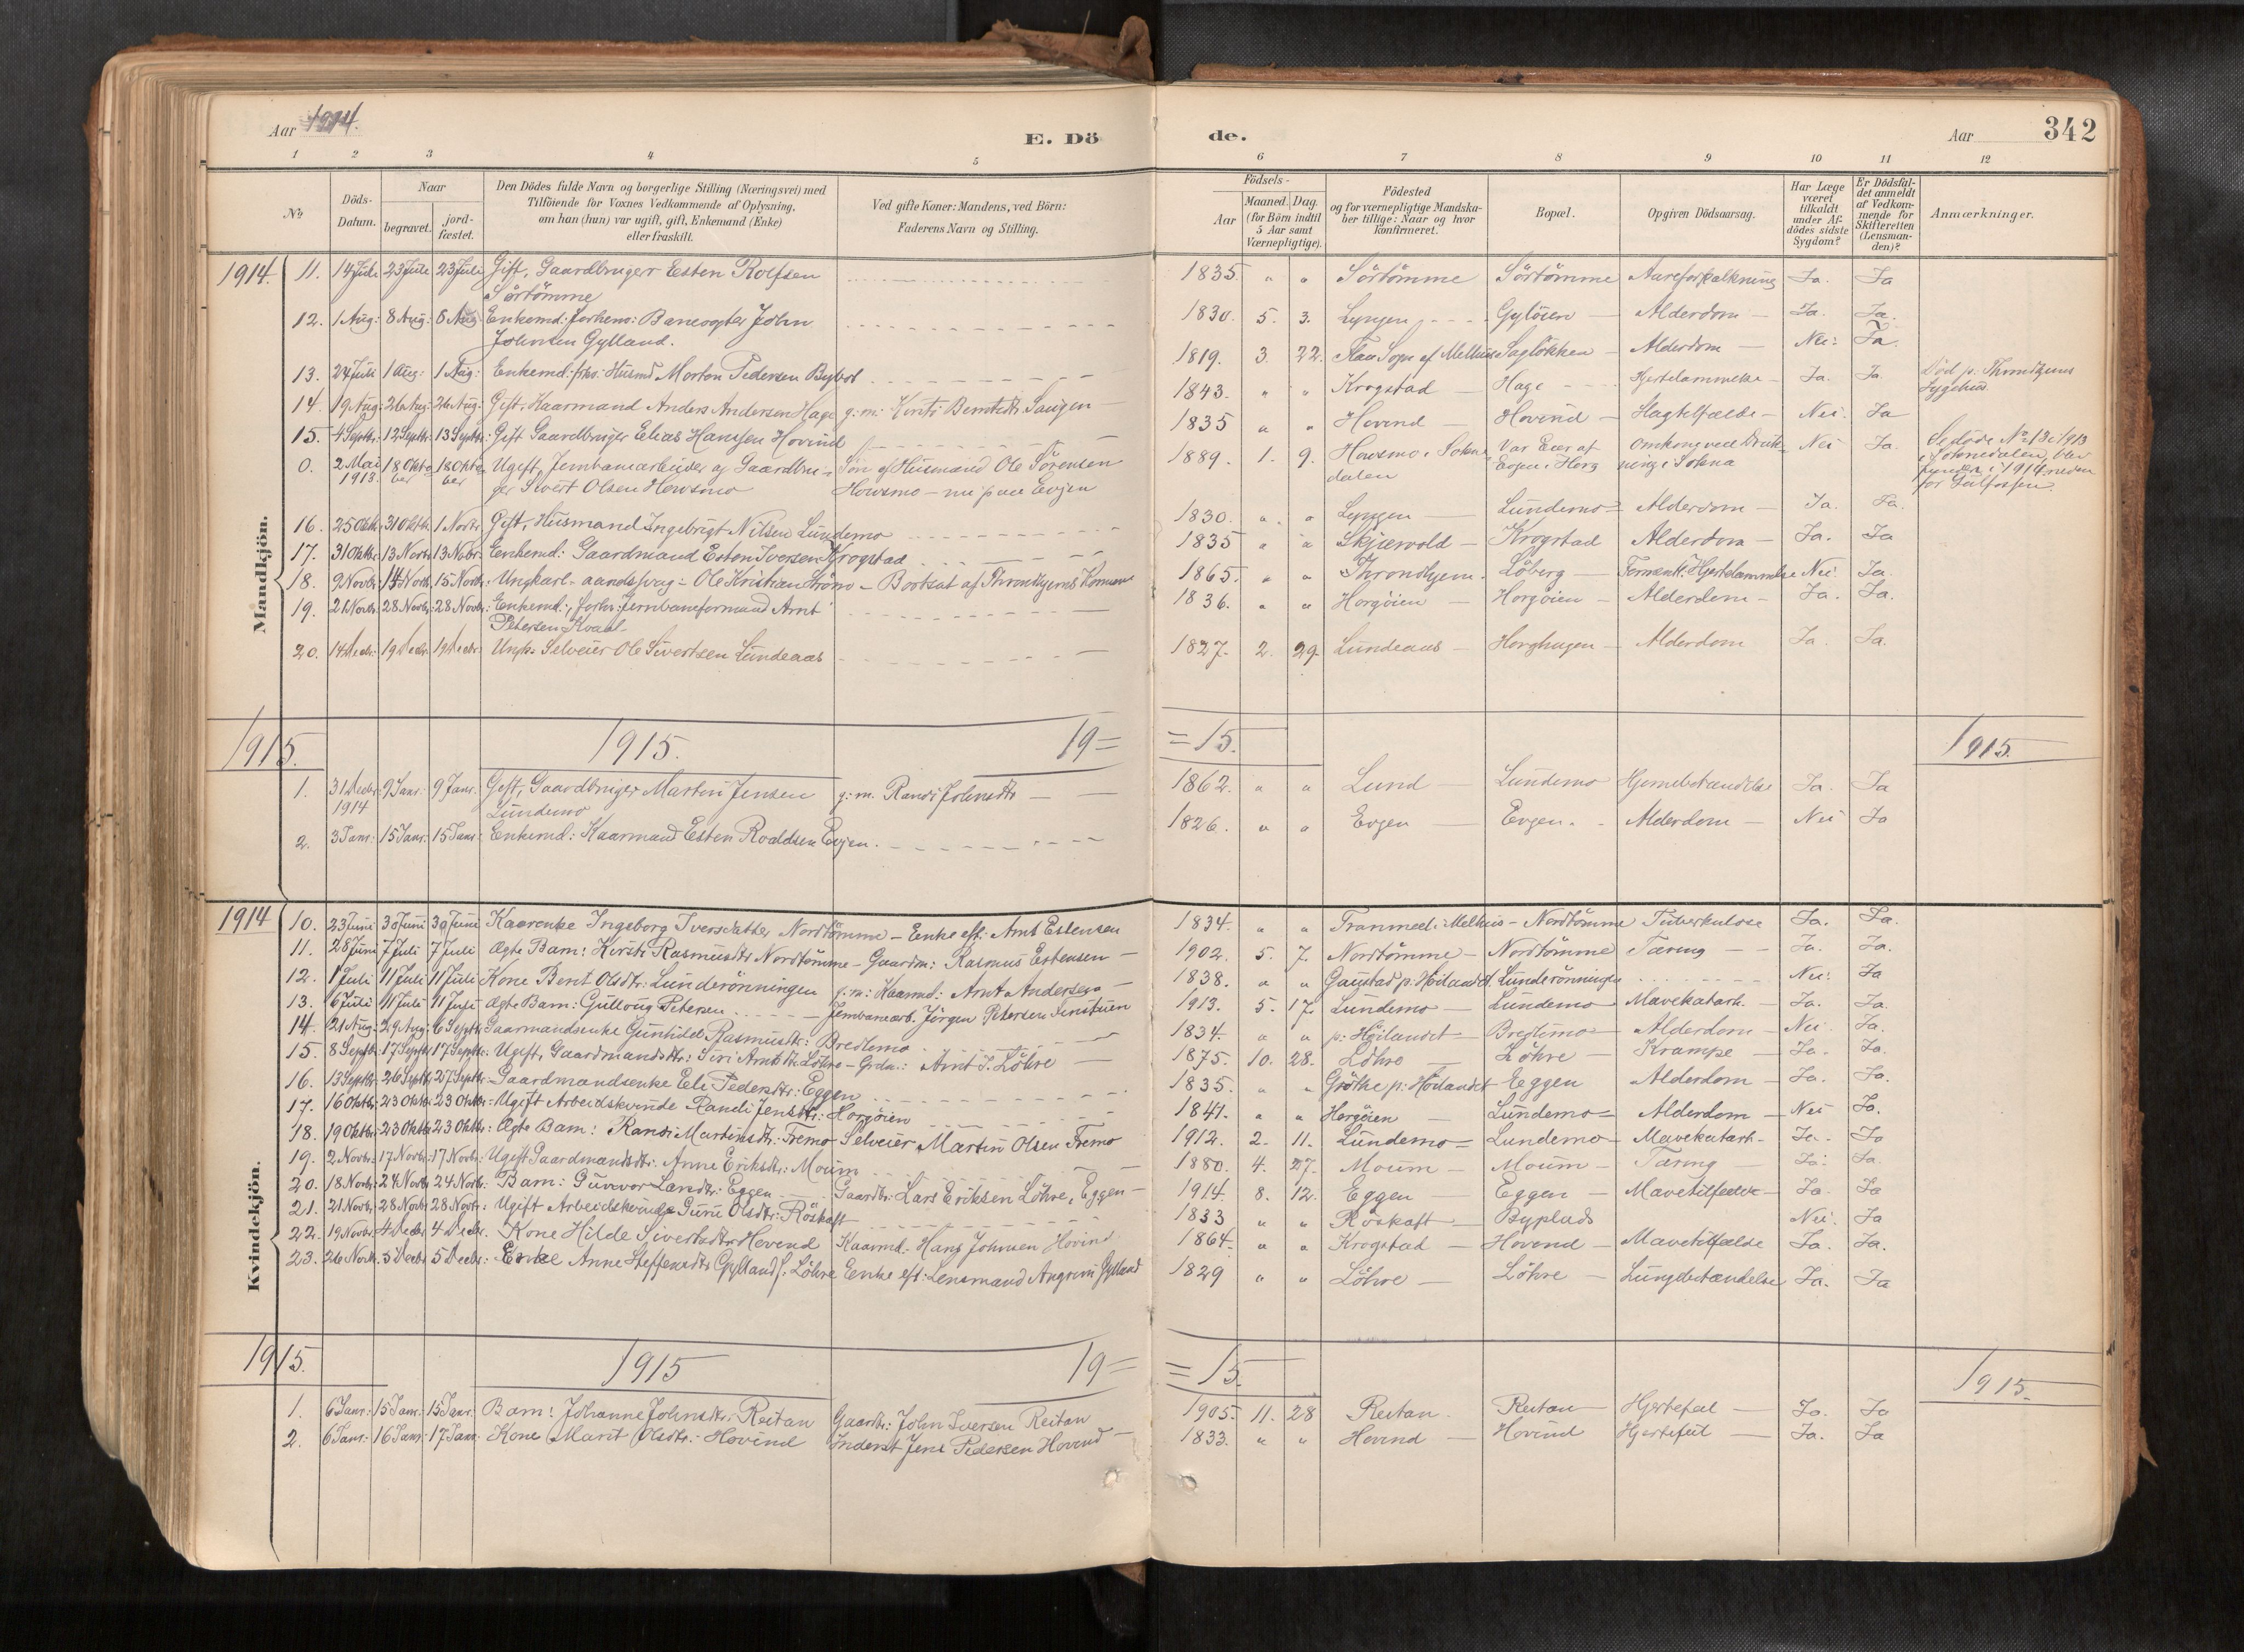 Aar 1914.
E. Dö
de.
Aar
342
1 2 3 4 5 6 7 8 9 10 11 12
№
Döds-Datum.
Naar
begravet.
jord-fæstet.
Den Dödes fulde Navn og borgerlige Stilling (Næringsvei) med
Tilföiende for Voxnes Vedkommende af Oplysning,
om han (hun) var ugift, gift, Enkemand (Enke)
eller fraskilt.
Ved gifte Koner: Mandens, ved Börn:
Faderens Navn og Stilling.
Födsels-
Aar
Maaned. Dag.
(for Börn indtil
5 Aar samt
Værnepligtige).
Födested
og for værnepligtige Mandska-
ber tillige: Naar og hvor
konfirmeret.
Bopæl.
Opgiven Dödsaarsag.
Har Læge
været
tilkaldt
under Af-
dödes sidste
Sygdom?
Er Dödsfal-
det anmeldt
af Vedkom-
mende for
Skifteretten
(Lensman-
den)?
Anmærkninger.
Mandkjön.
1914. 11. 14 Juli 23 Juli 23 Juli Gift, Gaardbruger Esten Rolfsen 1835. " " Sörtömme Sörtömme Aareforkalkning Ja. Ja
Sörtömme
12. 1 Aug: 8 Aug: 8 Aug: Enkemd: forhenv: Banevogter John 1830. 5. 3. Lyngen Gylöien Alderdom Ja. Ja.
Johnsen Gylland.
13. 24 Juli 1 Aug: 1 Aug: Enkemd: fhv: Husmd Morten Pedersen Bybrot 1819. 3. 22. Flaa Sogn af Melhus Sagløkken Alderdom Nei: Ja.
14. 19 Aug: 26 Aug: 26 Aug: Gift, Kaarmand Anders Andersen Hage g: m: Kirsti Berntsdtr Saugen 1843. " " Krogstad Hage Hjertelammelse Ja. Ja. Död p: Throndhjems
Sygehus
15. 4 Septbr: 12 Septbr: 13 Septbr: Gift Gaardbruger Elias Hansen Hovind 1835 " " Hovind Hovind Slagtilfælde Nei. Ja
0. 2 Mai 18 Okto- 18 Okto- Ugift, Jernbanearbeider og Gaardbru- Sön af Husmand Ole Sörensen 1889. 1. 9. Howsmo i Sokne Var Eier af Omkom ved Druk- Nei Ja. Se döde No 13 i 1913
1913. ber ber ger Sivert Olsen Howsmo Howsmo - nu paa Evjen dalen Evjen i Horg ning i Sokna i Soknedalen, blev
funden i 1914 neden
for Gulfossen.
16. 25 Oktbr: 31 Oktbr: 1 Novbr: Gift, Husmand Ingebrigt Nilsen Lundemo 1830. " " Lyngen Lundemo Alderdom Ja. Ja.
17. 31 Oktbr: 13 Novbr: 13 Novbr: Enkemd: Gaardmand Esten Iversen Krogstad 1835 " " Skjærvold Krogstad Alderdom Ja. Ja
18. 9 Novbr: 14 Novbr: 15 Novbr: Ungkarl - aandssvag - Ole Kristian Ström - Bortsat af Throndhjems Komune 1865. " " Throndhjem. Löberg Hjertelammelse Nei. Ja.
19. 21 Novbr: 28 Novbr: 28 Novbr: Enkemd:, forhv: Jernbaneformand Arnt 1836. " " Horgöien Horgöien Alderdom Ja. Ja.
Petersen Kvaal
20. 14 Decbr: 19 Decbr: 19 Decbr: Selveier Ole Sivertsen Lundeaas 1827. 2. 29. Lundeaas Horghagen Alderdom Ja. Ja.
1915. 1915. 19= =15. 1915.
1. 31 Decbr: 9 Janr: 9 Janr: Gift, Gaardbruger Martin Jensen g: m. Randi Johnsdtr 1862. " " Lund Lundemo Hjernebetændelse Ja. Ja
1914 Lundemo
2. 3 Janr: 15 Janr: 15 Janr: Enkemd: Kaarmand Esten Evjen. 1826. " " Evjen Evjen. Alderdom Nei Ja
Kvindekjön.
1914 10. 23 Juni 30 Juni 30 Juni Kaarenke Ingeborg Iversdatter Nordtömme - Enke eft: Arnt Estensen 1834. " " Tranmæl i Melhus - Nordtömme Tuberkulose Ja. Ja.
11. 28 Juni 7 Juli 7 Juli Ægte Barn: Kirsti Rasmusdtr Nordtömme - Gaardm: Rasmus Estensen 1902. 5. 7. Nordtömme Nordtömme Tæring Ja. Ja.
12. 1 Juli 11 Juli 11 Juli Kone Berit Olsdtr: Lunderönningen g: m: Kaarmd: Arnt Andersen 1838. " " Gaustad p: Höilandet. Lunderönningen Nei. Ja
13. 6 Juli 11 Juli 11 Juli Ægte Barn: Gullaug Petersen Jernbanearb. Jörgen Petersen Finstuen 1913. 5. 17. Lundemo Lundemo Mavekatarh. Ja. Ja.
14. 21 Aug: 29 Aug: 6 Septbr: Gaarmandsenke Gunhild Rasmusdtr: Bredlemo 1834. " " p: Höilandet Bredlemo Alderdom Nei. Ja.
15. 8 Septbr: 17 Septbr: 17 Septbr: Ugift, Gaardmandsdtr: Siri Arntsdtr Löhre - Grdm.: Arnt J. Löhre 1875. 10. 28. Löhre Löhre Krampe Ja. Ja.
16. 13 Septbr: 26 Septbr: 27 Septbr: Gaardmandsenke Eli Pedersdtr: Eggen 1835. " " Gröthe p: Höilandet Eggen Alderdom Ja. Ja.
17. 16 Oktbr: 23 Oktbr: 23 Oktbr: Ugift Arbeidskvinde Randi Jensdtr: Horgöien 1841. " " Horgöien Lundemo Alderdom Nei Ja.
18. 19 Oktbr: 23 Oktbr: 23 Oktbr: Ægte Barn: Randi Martinsdtr: Fremo Selveier Martin Olsen Fremo 1912. 2. 11. Lundemo Lundemo Mavekatarh. Ja. Ja
19. 2 Novbr: 17 Novbr: 17 Novbr: Ugift Gaardmandsdtr: Anne Eriksdtr: Moum 1880. 4. 27. Moum Moum Tæring Ja. Ja.
20. 18 Novbr: 24 Novbr: 24 Novbr: Barn: Gunvor Larsdtr: Eggen Gaardbr: Lars Eriksen Löhre, Eggen 1914. 8. 12. Eggen Eggen Mavetilfælde Ja. Ja
21. 21 Novbr: 28 Novbr: 28 Novbr: Ugift Arbeidskvinde Guru Olsdtr: Röskaft 1833 " " Röskaft Byplads Nei. Ja
22. 19 Novbr: 4 Decbr: 4 Decbr: Kone Hilde Sivertsdtr Hovend Kaarmd: Hans Johnsen Hovind 1864. " " Krogstad Hovend Mavetilfælde Ja. Ja.
23. 26 Novbr: 5 Decbr: 5 Decbr: Enke Anne Steffensdtr Gylland f. Löhre Enke eft: Lensmand Angrim Gylland 1829 " " Löhre Löhre Lungebetændelse Ja. Ja
1915. 1915 19= =15. 1915.
1. 6 Janr: 15 Janr: 15 Janr: Barn: Johanne Johnsdtr: Reitan Gaardbr: John Iversen Reitan 1905. 11. 28 Reitan. Reitan Hjertefeil Ja. Ja
2. 6 Janr: 16 Janr: 17 Janr: Kone Marit Olsdtr: Hovind Inderst Jens Pedersen Hovind 1833. " " Hovind Hovind Hjertefeil Ja. Ja